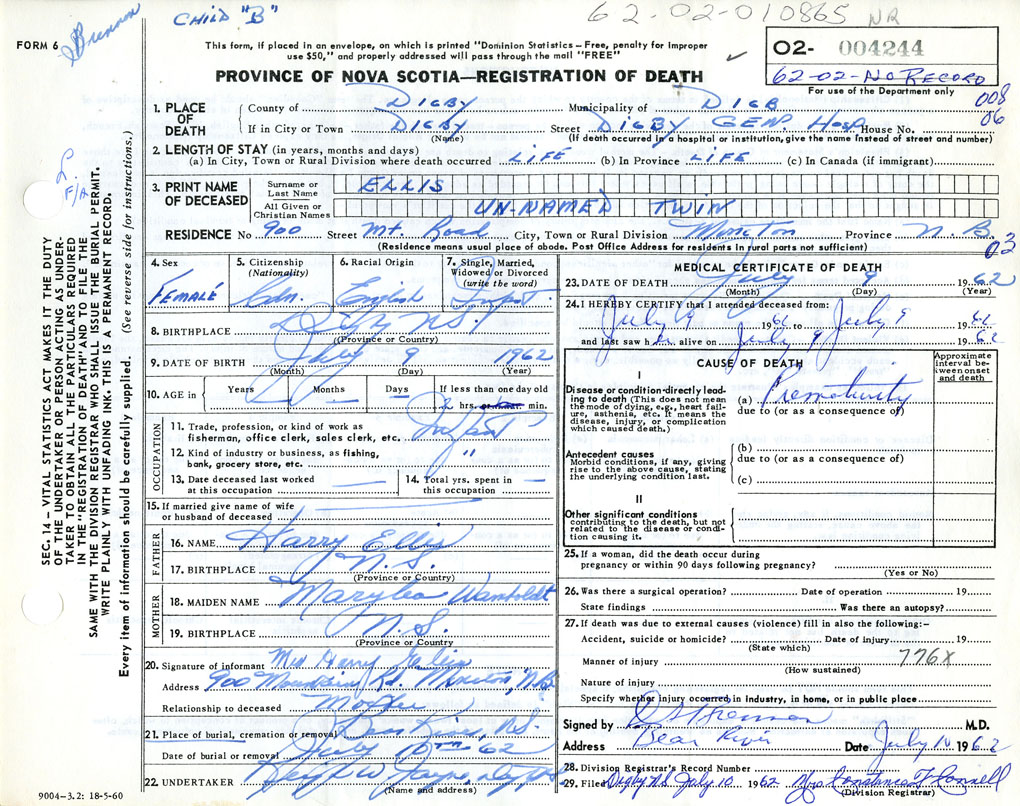 CHILD "B"
62-02-010865 NR
FORM 6
Brennan
This form, if placed in an envelope, on which is printed "Dominion Statistics – Free, penalty for improper
use $50," and properly addressed will pass through the mail "FREE"
PROVINCE OF NOVA SCOTIA—REGISTRATION OF DEATH
02- 004244
62-02-NO RECORD
For use of the Department only
008
06
1. PLACE OF DEATH
County of DIGBY Municipality of DIGB
If in City or Town DIGBY Street DIGBY GEN. Hosp House No.
(Name) (If death occurred in a hospital or institution, give the name instead of street and number)
2. LENGTH OF STAY (in years, months and days)
(a) In City, Town or Rural Division where death occurred LIFE (b) In Province LIFE (c) In Canada (if immigrant)
3. PRINT NAME OF DECEASED
Surname or Last Name ELLIS
All Given or Christian Names UN-NAMED TWIN
RESIDENCE No 900 Street Mt. Road City, Town or Rural Division Moncton Province N.B.
(Residence means usual place of abode. Post Office Address for residents in rural parts not sufficient)
03
4. Sex Female
5. Citizenship (Nationality) Cdn.
6. Racial Origin English
7. Single, Married, Widowed or Divorced (write the word) Infant
8. BIRTHPLACE Digby N.S.
(Province or Country)
9. DATE OF BIRTH July 9 1962
(Month) (Day) (Year)
10. AGE in Years Months Days If less than one day old
hrs. or min.
OCCUPATION
11. Trade, profession, or kind of work as
fisherman, office clerk, sales clerk, etc. Infant
12. Kind of industry or business, as fishing,
bank, grocery store, etc. "
13. Date deceased last worked
at this occupation
14. Total yrs. spent in
this occupation
15. If married give name of wife
or husband of deceased
FATHER
16. NAME Harry Ellis
17. BIRTHPLACE N.S.
(Province or Country)
MOTHER
18. MAIDEN NAME Marylea Wamboldt
19. BIRTHPLACE N.S.
(Province or Country)
20. Signature of informant Mrs Harry Ellis
Address 900 Mountain Rd. Moncton, N.B.
Relationship to deceased Mother
21. Place of burial, cremation or removal Bear River, N.S.
Date of burial or removal July 10th 62
22. UNDERTAKER
(Name and address)
9004-3.2: 18-5-60
MEDICAL CERTIFICATE OF DEATH
23. DATE OF DEATH July 9 1962
(Month) (Day) (Year)
24. I HEREBY CERTIFY that I attended deceased from:
July 9 1962 to July 9 1962
and last saw her alive on July 9 1962
CAUSE OF DEATH
Approximate interval between onset and death
I
Disease or condition directly leading
to death (This does not mean
the mode of dying, e.g., heart failure,
asthenia, etc. It means the
disease, injury, or complication
which caused death.)
(a) Prematurity
due to (or as a consequence of)
Antecedent causes
Morbid conditions, if any, giving
rise to the above cause, stating
the underlying condition last.
(b)
due to (or as a consequence of)
(c)
II
Other significant conditions
contributing to the death, but not
related to the disease or condition
causing it.
25. If a woman, did the death occur during
pregnancy or within 90 days following pregnancy?
(Yes or No)
26. Was there a surgical operation? Date of operation 19
State findings Was there an autopsy?
27. If death was due to external causes (violence) fill in also the following:-
Accident, suicide or homicide? Date of injury 19
(State which)
Manner of injury 776X
(How sustained)
Nature of injury
Specify whether injury occurred in industry, in home, or in public place
Signed by M.D.
Address Bear River Date July 10 1962
28. Division Registrar's Record Number
29. Filed Digby N.S. July 10 1962
(Division Registrar)
F/A
SEC. 14 – VITAL STATISTICS ACT MAKES IT THE DUTY
OF THE UNDERTAKER OR PERSON ACTING AS UNDERTAKER
TO OBTAIN ALL THE PARTICULARS REQUIRED
IN THE "REGISTRATION OF DEATH" AND TO FILE THE
SAME WITH THE DIVISION REGISTRAR WHO SHALL ISSUE THE BURIAL PERMIT.
WRITE PLAINLY WITH UNFADING INK. THIS IS A PERMANENT RECORD.
Every item of information should be carefully supplied. (See reverse side for instructions.)